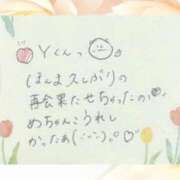 Yくんっ
ほんま久しぶりの
再会果たせちゃったの
めちゃんこうれし
かったぁ(´︶`).｡♡